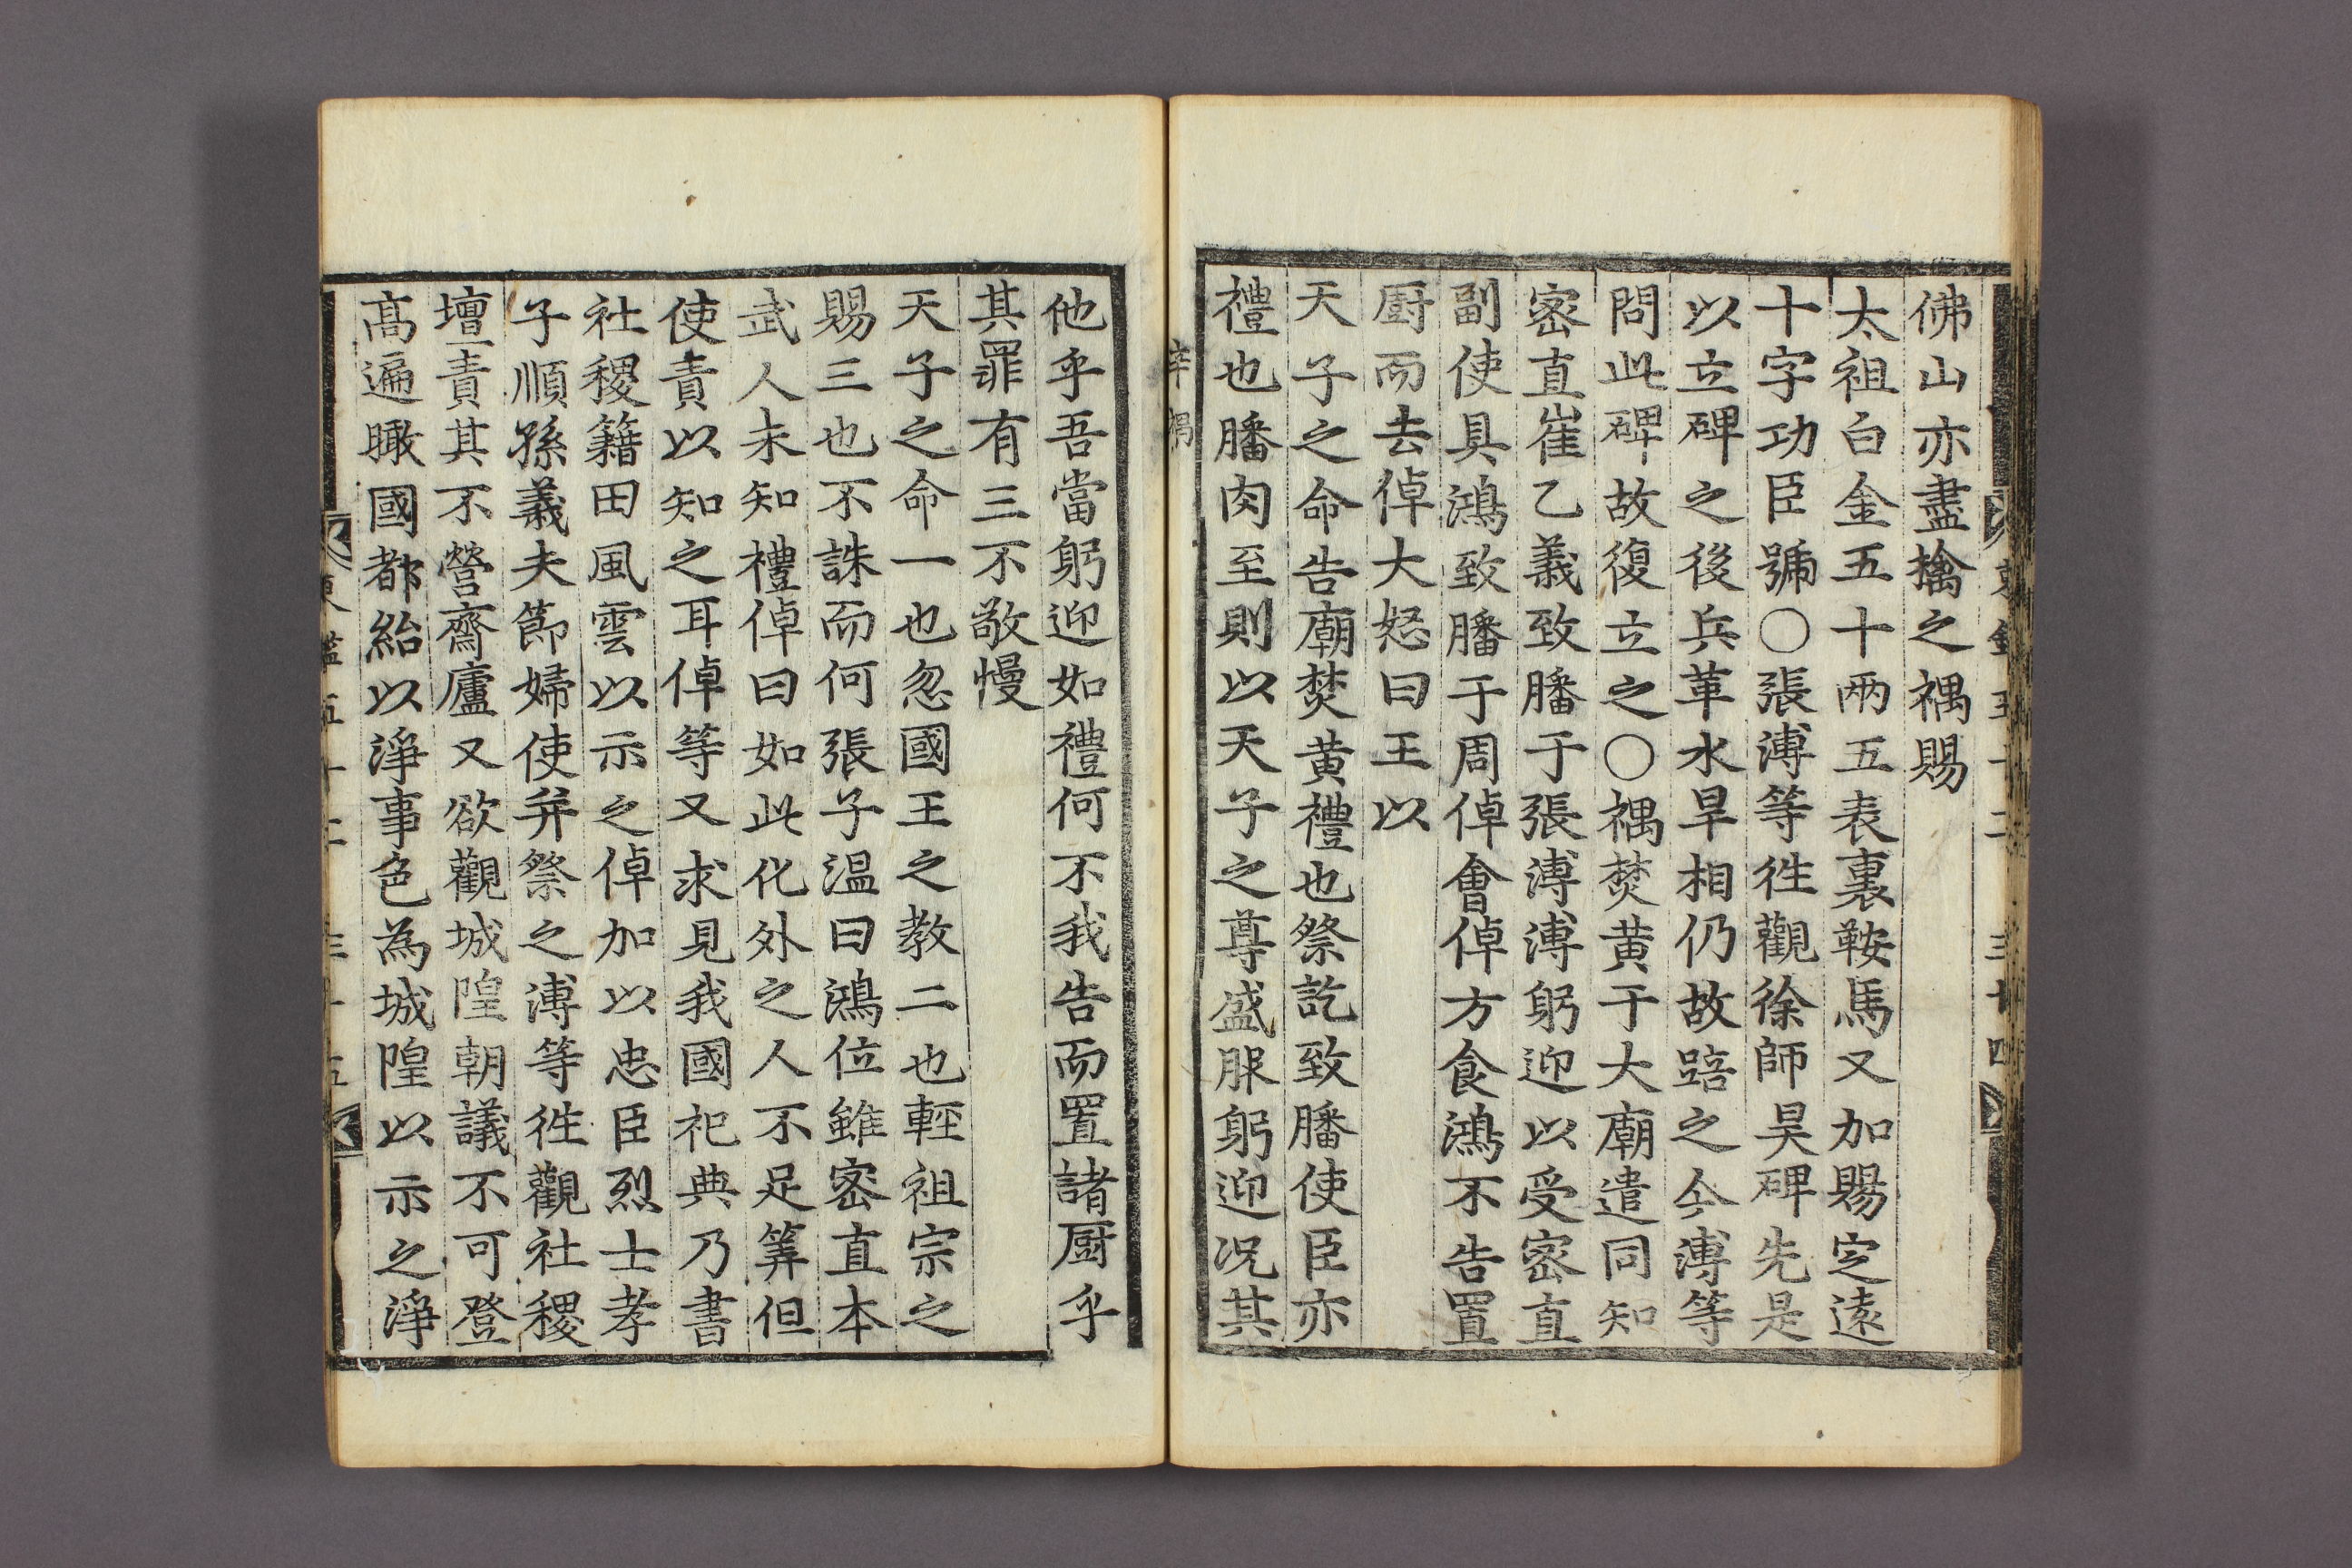 佛山亦盡擒之禑賜
太祖白金五十兩五表裏鞍馬又加賜定遠
十字功臣號○張溥等徃觀徐師昊碑先是
以立碑之後兵革水旱相仍故踣之今溥等
問此碑故復立之○禑焚黄于大廟遣同知
密直崔乙義致膰于張溥溥躬迎以受密直
副使具鴻致膰于周倬會倬方食鴻不告置
厨而去倬大怒曰王以
天子之命告廟焚黄禮也祭訖致膰使臣亦
禮也膰肉至則以天子之尊盛服躬迎况其
辛禑
他乎吾當躬迎如禮何不我告而置諸厨乎
其罪有三不敬慢
天子之命一也忽國王之教二也輕祖宗之
賜三也不誅而何張子温曰鴻位雖密直本
武人未知禮倬曰如此化外之人不足筭但
使責以知之耳倬等又求見我國祀典乃書
社稷籍田風雲以示之倬加以忠臣烈士孝
子順孫義夫節婦使并祭之溥等徃觀社稷
壇責其不營齋廬又欲觀城隍朝議不可登
髙遍瞰國都紿以淨事色為城隍以示之淨